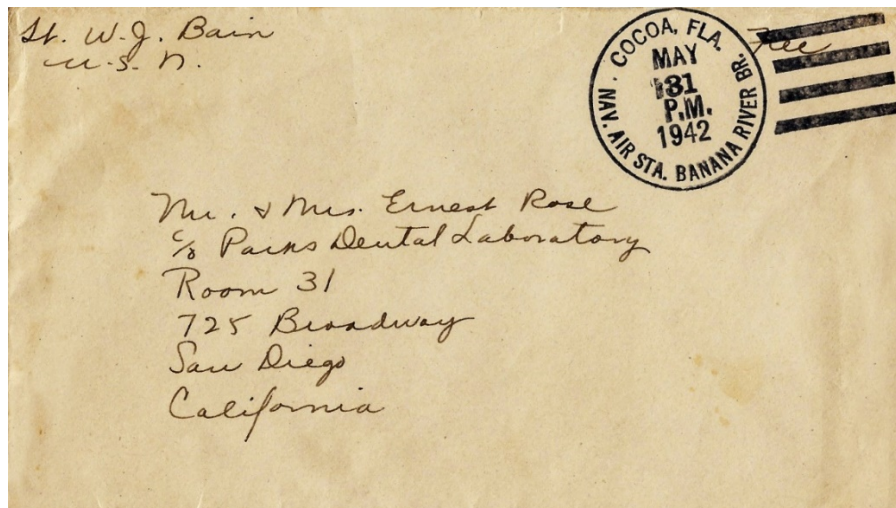 Lt. W.J. Bain
U.S.N.
Free
COCOA, FLA.
MAY
31
P.M.
1942
NAV. AIR STA. BANANA RIVER BR.
Mr. & Mrs. Ernest Rose
c/o Parks Dental Laboratory
Room 31
725 Broadway
San Diego
California